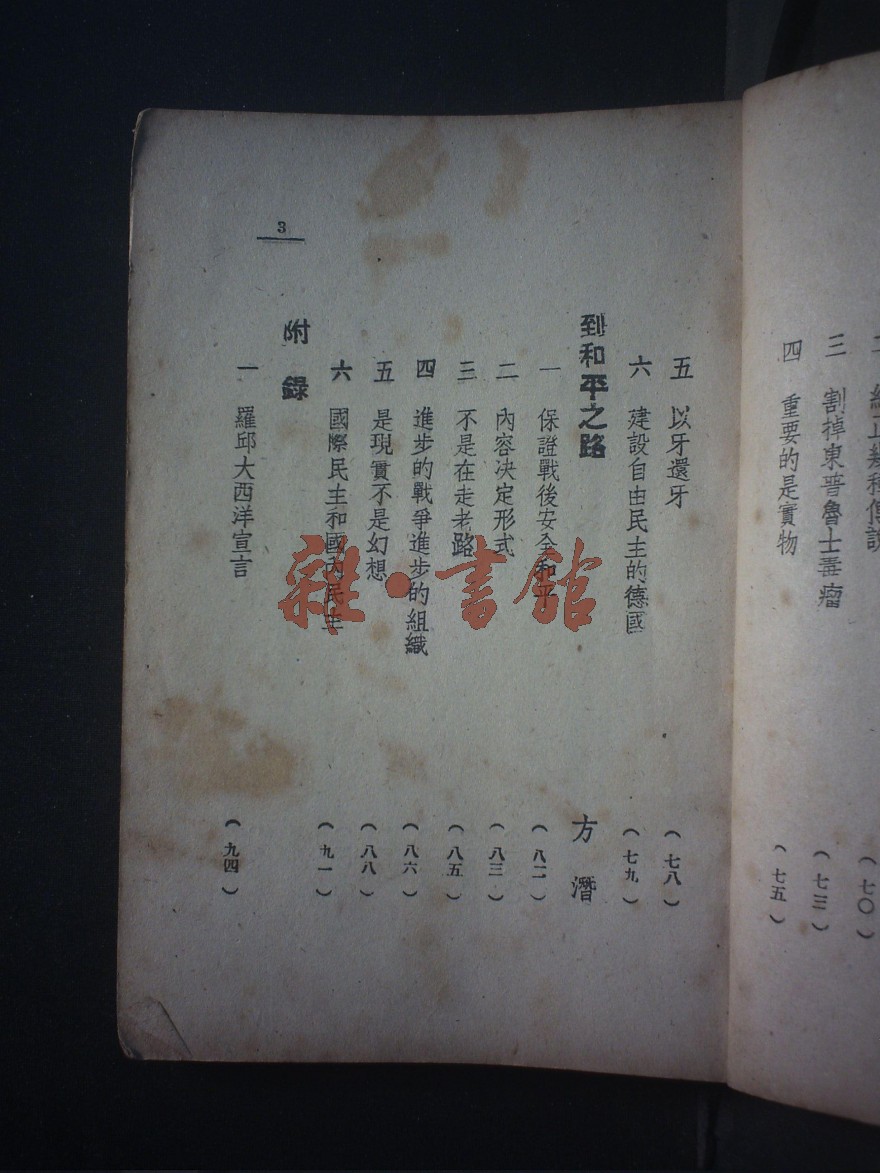 正幾種傳說 (七〇)
三 割掉東普魯士毒瘤 (七三)
四 重要的是實物 (七五)
3
五 以牙還牙 (七八)
六 建設自由民主的德國 (七九)
到和平之路 方潛
一 保證戰後安全和平 (八二)
二 內容決定形式 (八三)
三 不是在走老路 (八五)
四 進步的戰爭進步的組織 (八六)
五 是現實不是幻想 (八八)
六 國際民主和國內民主 (九一)
附錄
一 羅邱大西洋宣言 (九四)
雜·書館